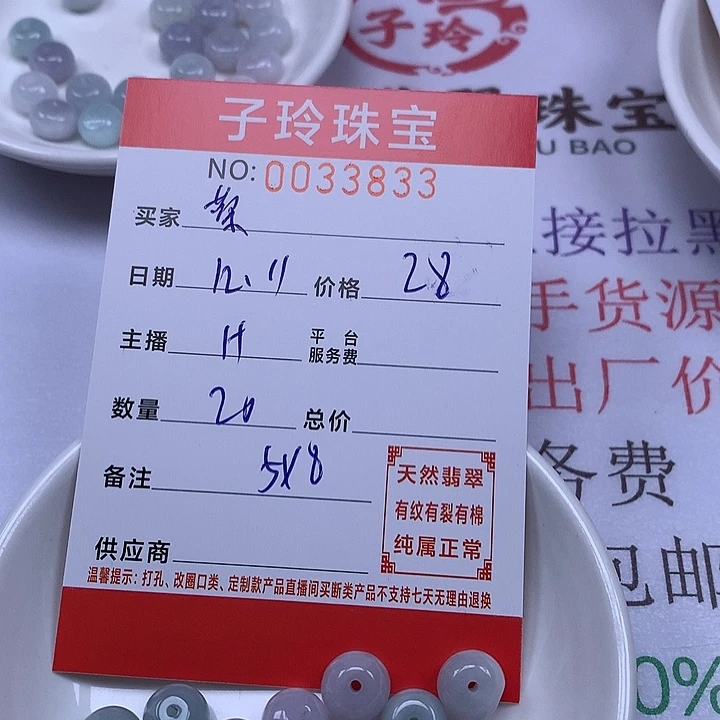 子玲
珠宝
U BAO
子玲珠宝
NO: 0033833
买家
日期 12.11 价格 28
主播 H 平台服务费
数量 20 总价
备注 5X8
供应商
天然翡翠
有纹有裂有棉
纯属正常
温馨提示：打孔、改圈口类、定制款产品直播间买断类产品不支持七天无理由退换
接拉黑
手货源
出厂价
务费
包邮
0%